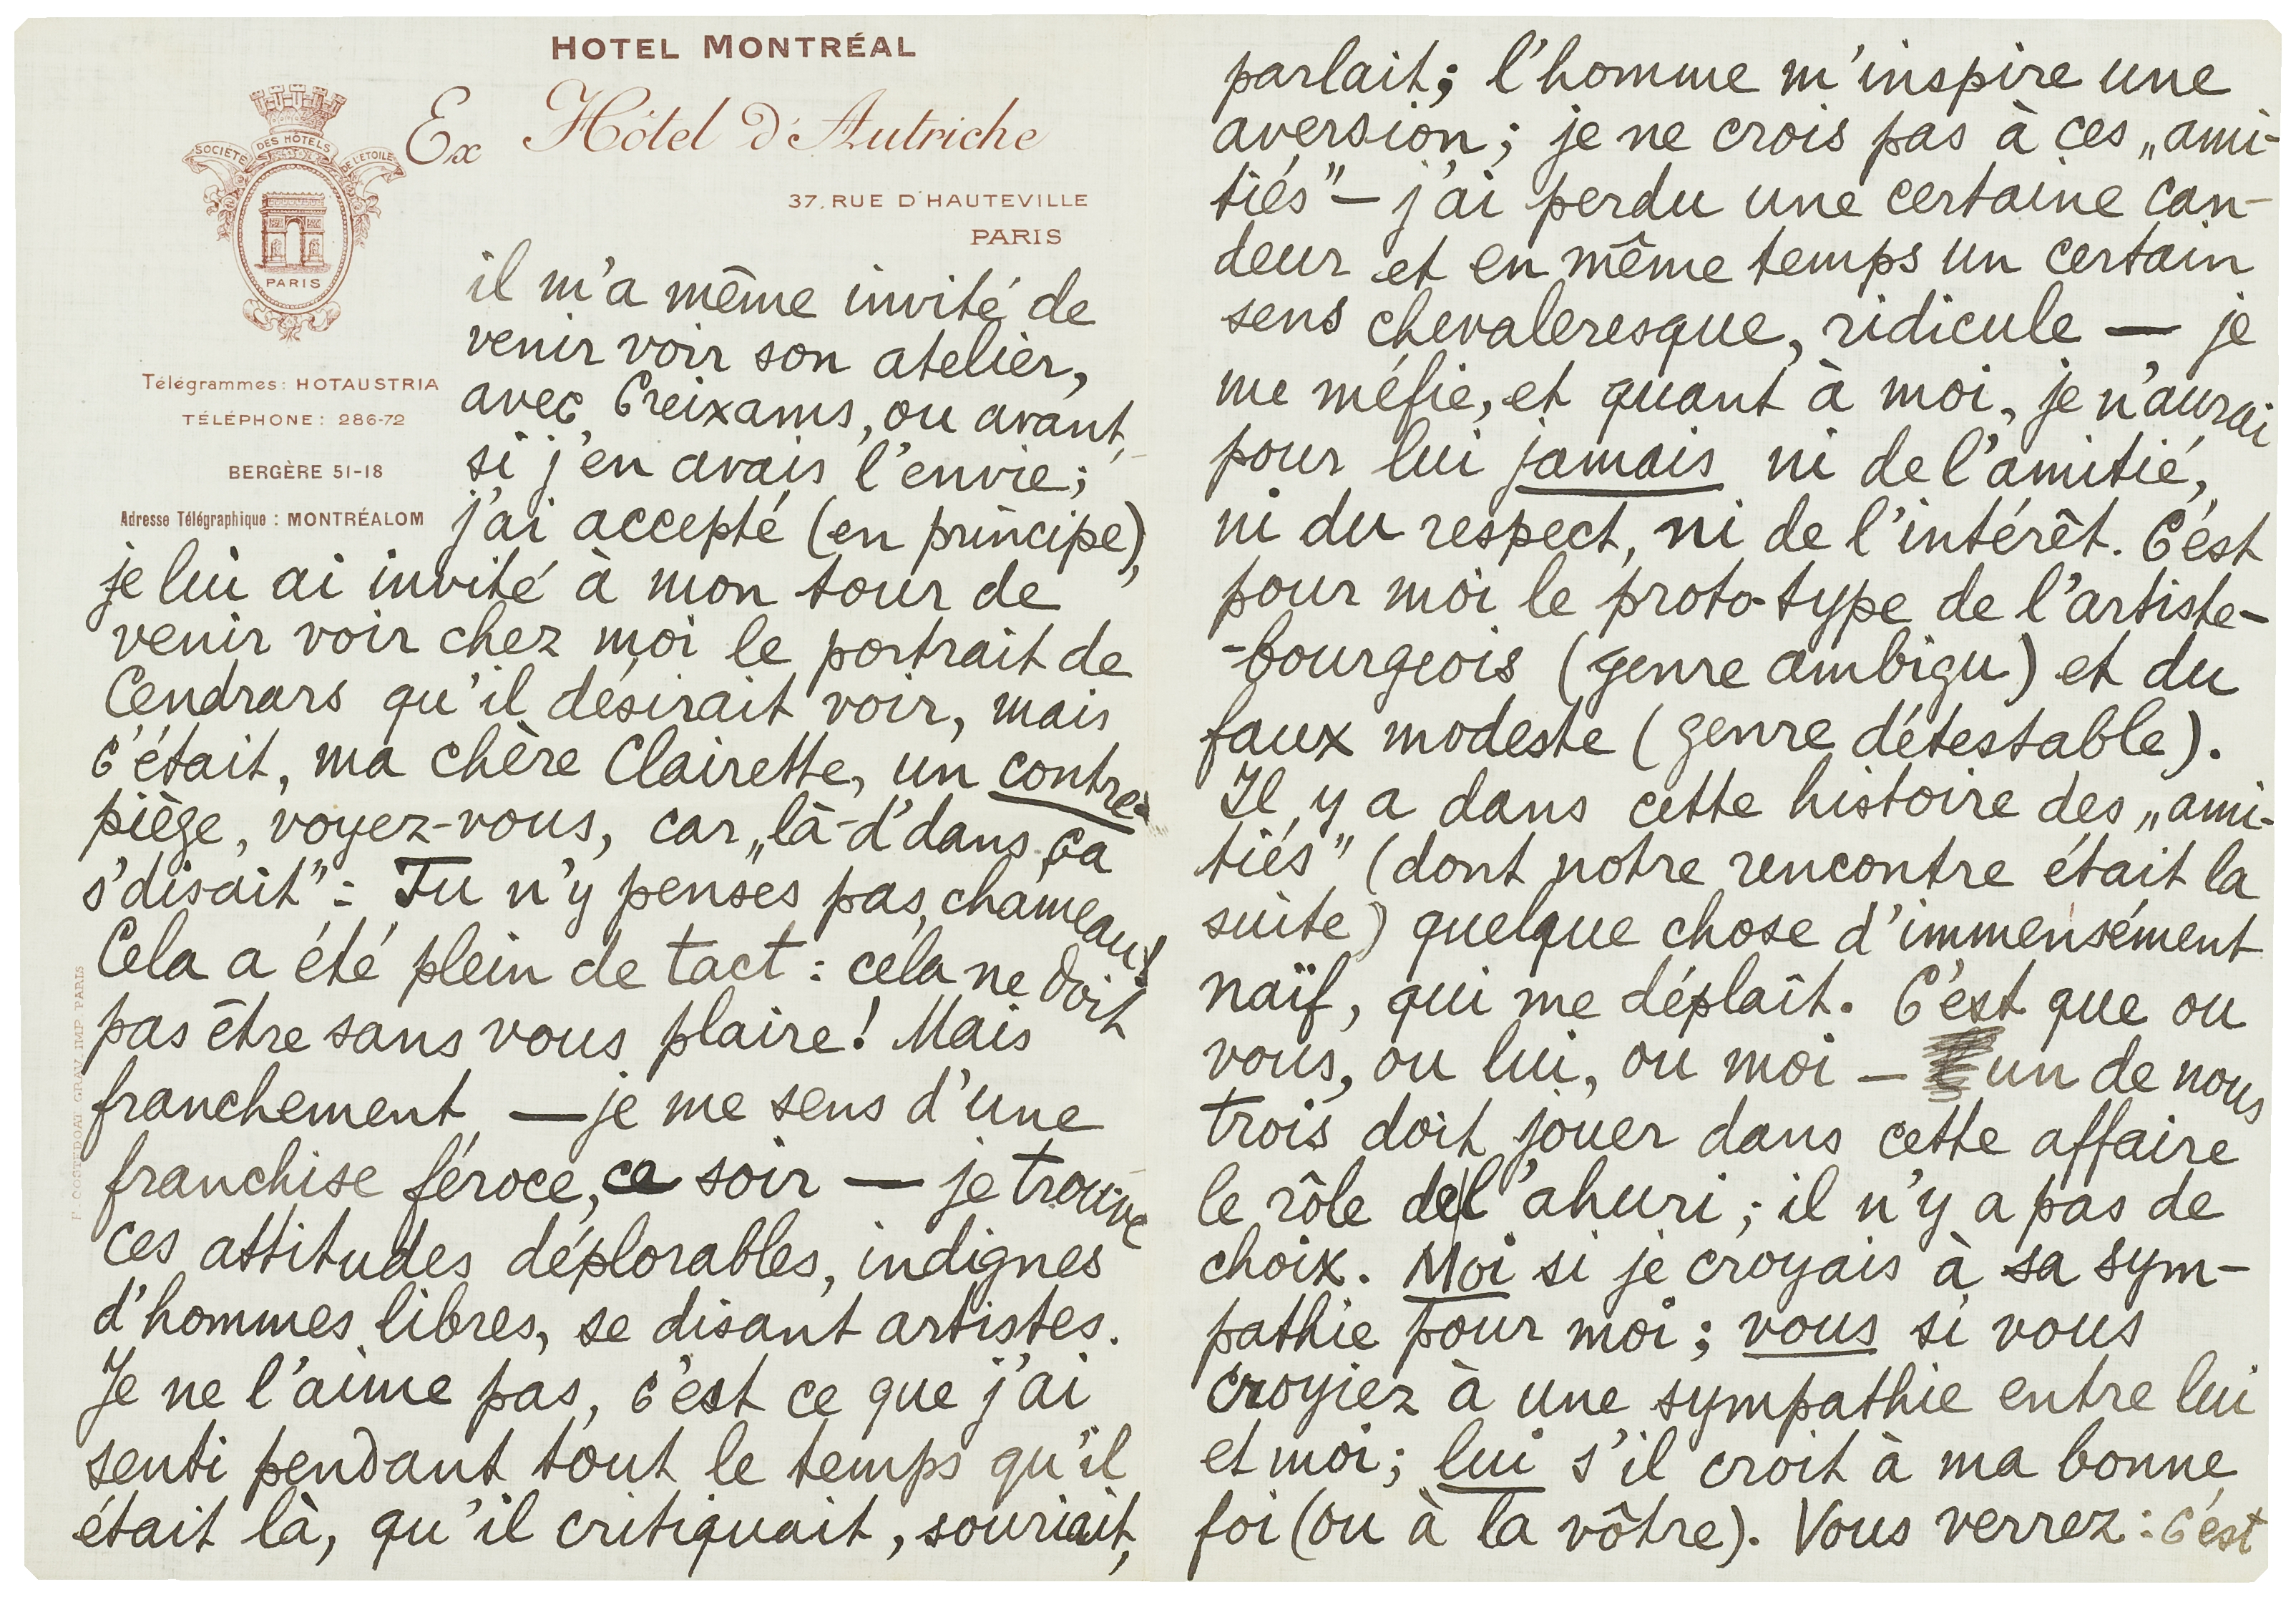 HOTEL MONTRÉAL
Ex Hôtel d'Autriche
37, RUE D'HAUTEVILLE
PARIS
SOCIÉTÉ DES HÔTELS DE L'ETOILE
PARIS
Télégrammes: HOTAUSTRIA
TÉLÉPHONE: 286-72
BERGÈRE 51-18
Adresse Télégraphique : MONTRÉALOM
il m'a même invité de
venir voir son atelier,
avec Creixams, ou avant,
si j'en avais l'envie;
j'ai accepté (en principe),
je lui ai invité à mon tour de
venir voir chez moi le portrait de
Cendrars qu'il désirait voir, mais
c'était, ma chère Clairette, un contre-
piège, voyez-vous, car „là-d'dans ça
s'disait": Tu n'y penses pas, chameau!
Cela a été plein de tact : cela ne doit
pas être sans vous plaire! Mais
franchement — je me sens d'une
franchise féroce, ce soir — je trouve
ces attitudes déplorables, indignes
d'hommes libres, se disant artistes.
Je ne l'aime pas, c'est ce que j'ai
senti pendant tout le temps qu'il
était là, qu'il critiquait, souriait,
parlait; l'homme m'inspire une
aversion; je ne crois pas à ces „ami-
tiés" — j'ai perdu une certaine can-
deur et en même temps un certain
sens chevaleresque, ridicule — je
me méfie, et quant à moi, je n'aurai
pour lui jamais ni de l'amitié,
ni du respect, ni de l'intérêt. C'est
pour moi le proto-type de l'artiste-
-bourgeois (genre ambigu) et du
faux modeste (genre détestable).
Il y a dans cette histoire des „ami-
tiés" (dont notre rencontre était la
suite) quelque chose d'immensément
naïf, qui me déplaît. C'est que ou
vous, ou lui, ou moi — un de nous
trois doit jouer dans cette affaire
le rôle de l'ahuri; il n'y a pas de
choix. Moi si je croyais à sa sym-
pathie pour moi; vous si vous
croyiez à une sympathie entre lui
et moi; lui s'il croit à ma bonne
foi (ou à la vôtre). Vous verrez: c'est